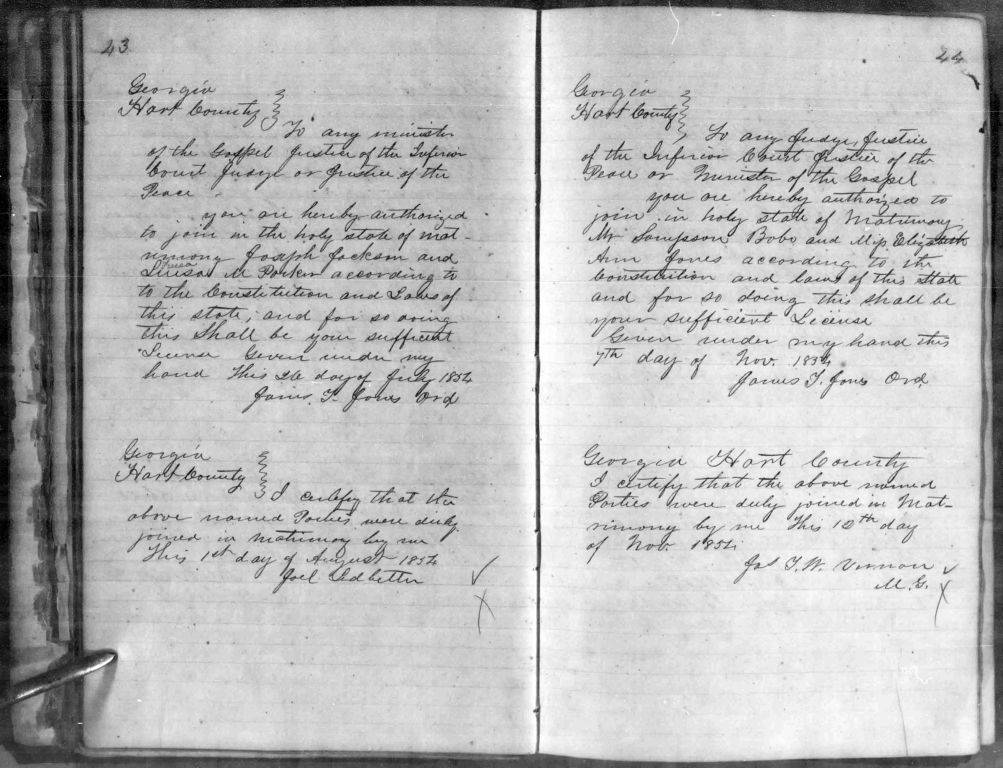 43
Georgia
Hart County
To any minister
of the Gospel Justice of the Inferior
Court Judge or Justice of the
Peace
you are hereby authorized
to join in the holy state of mat-
rimony Joseph Jackson and
M Parker according to
to the Constitution and Laws of
this state, and for so doing
this Shall be your sufficient
License Given under my
hand This 26 day of July 1854
James T. Jones Ord
Georgia
Hart County
I certify that the
above named Parties were duly
joined in matrimony by me
This 1st day of August 1854
Joel Ledbetter
44
Georgia
Hart County
To any Judge, Justice
of the Inferior Court Justice of the
Peace or Minister of the Gospel
you are hereby authorized to
join in holy state of Matrimony
Mr Sampson Bobo and Miss Elizabeth
Ann Jones according to the
Constitution and laws of this State
and for so doing this shall be
your sufficient License
Given under my hand this
7th day of Nov. 1854
James T. Jones Ord.
Georgia Hart County
I certify that the above named
Parties were duly joined in Mat-
rimony by me This 12th day
of Nov. 1854
Jas T. W. Vernon
M. G.